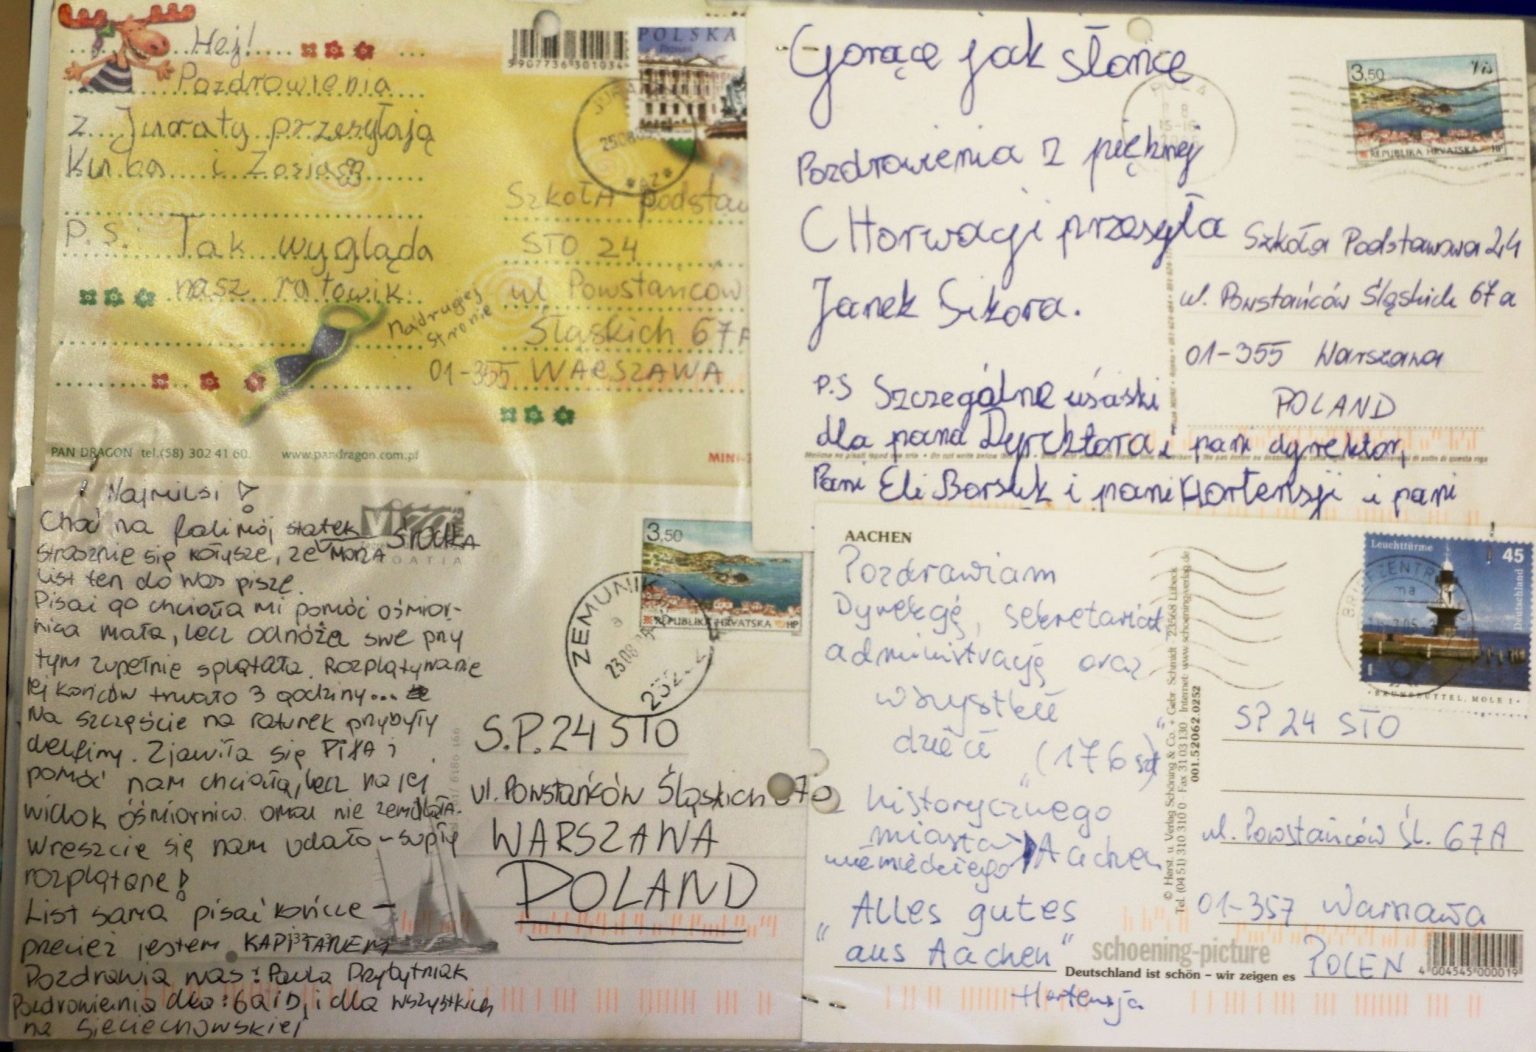 Hej!
Pozdrowienia
z Juraty przesyłają
Kuba i Zosia
P.S. Tak wygląda
nasz ratowik
Na drugiej
stronie
5907736301034
POLSKA
Poznań
25.08
Szkoła Podstaw
STO 24
ul Powstańców
Śląskich 67A
01-355 WARSZAWA
PAN DRAGON tel.(58) 302 41 60. www.pandragon.com.pl
MINI-
Gorące jak słońce
Pozdrowienia z pięknej
CHorwacji przesyła
Janek Sikora.
P.S Szczególne uściski
dla pana Dyrektora i pani dyrektor,
Pani Eli Borsuk i pani Hortensji i pani
PULA
3,50 Vis
REPUBLIKA HRVATSKA HP
Szkoła Podstawowa 24
ul. Powstańców Śląskich 67a
01-355 Warszawa
POLAND
Najmilsi!
Choć na fali mój statek
strasznie się kołysze, ze MORZA ŚRODKA
list ten do Was piszę.
Pisać go chciała mi pomóc ośmior-
nica mała, lecz odnóża swe przy
tym zupełnie splątała. Rozplątywanie
jej końców trwało 3 godziny...
Na szczęście na ratunek przybyły
delfiny. Zjawiła się PIŁA i
pomóc nam chciała, lecz na jej
widok ośmiornica omal nie zemdlała.
Wreszcie się nam udało – supły
rozplątane!
List sama pisać kończę –
przecież jestem KAPITANEM
Pozdrawia was: Paula Przybytniak
Pozdrowienia dla: 6a i D, i dla wszystkich
na Sieciechowskiej
CROATIA
3,50
REPUBLIKA HRVATSKA HP
ZEMUNIK
a
23.08
S.P. 24 STO
ul. Powstańców Śląskich 67a
WARSZAWA
POLAND
AACHEN
Pozdrawiam
Dyrekcję, sekretariat
administrację oraz
wszystkie
dzieci (176 szt)
z historycznego
miasta
niemieckiego Aachen
"Alles gutes
aus Aachen"
Hortensja
© Horst. u. Verlag Schöning & Co. + Gebr. Schmidt 23568 Lübeck
Tel. (04 51) 310 310 0 Fax 31 03 130 Internet: www.schoeningverlag.de
001.52062.0252
Leuchttürme 45
Deutschland
BRIEFZENTR
ma
BRUNSBÜTTEL, MOLE 1
SP 24 STO
ul. Powstańców Śl. 67A
01-357 Warszawa
POLEN
schoening-picture
Deutschland ist schön – wir zeigen es
4 004545 000019